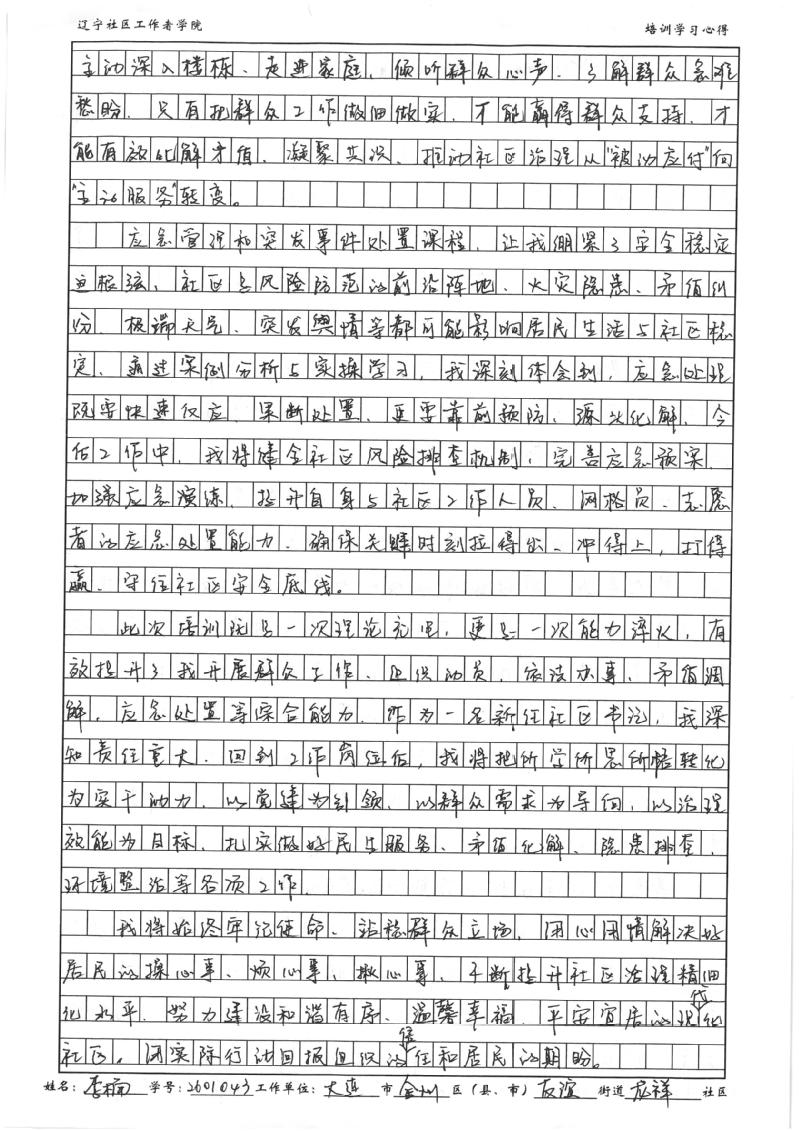 辽宁社区工作者学院 培训学习心得
主动深入楼栋、走进家庭，倾听群众心声、了解群众急难
愁盼，只有把群众工作做细做实，才能赢得群众支持，才
能有效化解矛盾、凝聚共识、推动社区治理从"被动应付"向
"主动服务"转变。
应急管理和突发事件处置课程，让我绷紧了安全稳定
这根弦，社区是风险防范的前沿阵地，火灾隐患、矛盾纠
纷、极端天气、突发舆情等都可能影响居民生活与社区稳
定，通过案例分析与实操学习，我深刻体会到，应急处理
既要快速反应、果断处置，更要靠前预防、源头化解，今
后工作中，我将健全社区风险排查机制，完善应急预案，
加强应急演练，提升自身与社区工作人员、网格员、志愿
者的应急处置能力，确保关键时刻拉得出、冲得上、打得
赢，守住社区安全底线。
此次培训既是一次理论充电，更是一次能力淬火，有
效提升了我开展群众工作、组织动员、依法办事、矛盾调
解、应急处置等综合能力，作为一名新任社区书记，我深
知责任重大，回到工作岗位后，我将把所学所思所悟转化
为实干动力，以党建为引领、以群众需求为导向、以治理
效能为目标，扎实做好民生服务、矛盾化解、隐患排查、
环境整治等各项工作，
我将始终牢记使命、站稳群众立场，用心用情解决好
居民的操心事、烦心事、揪心事，不断提升社区治理精细
化水平，努力建设和谐有序、温馨幸福、平安宜居的现代化
社区，用实际行动回报组织的信任和居民的期盼。
姓名：李楠 学号：2601043 工作单位：大连 市 金州 区（县、市） 友谊 街道 宏祥 社区